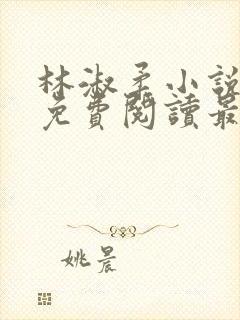 林淑柔小說
免費閱讀最
姚晨